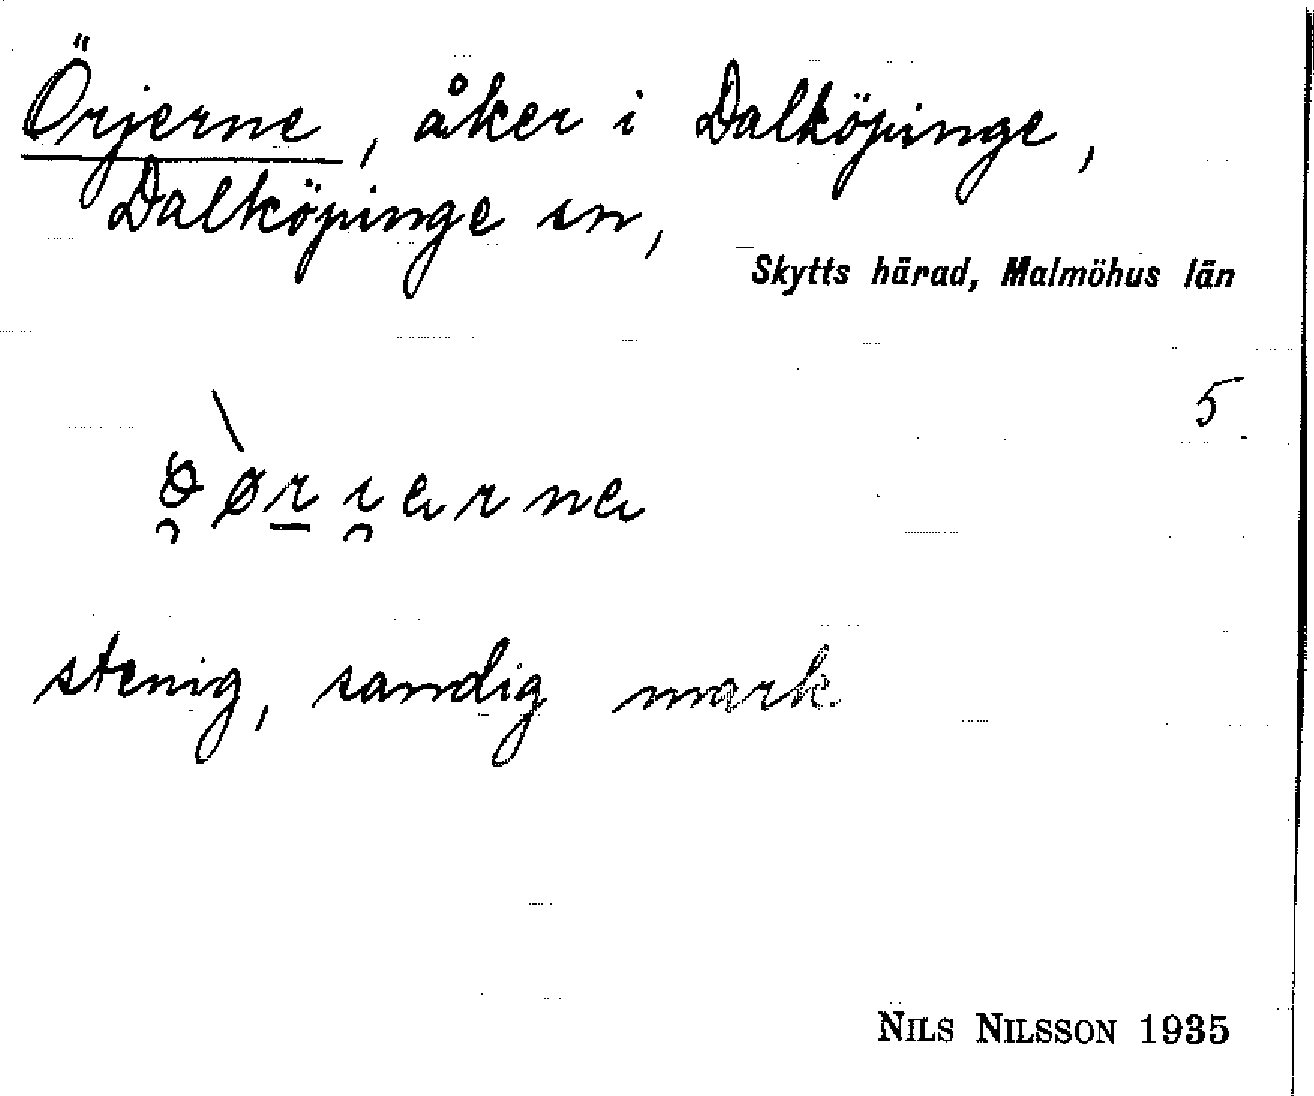 Örjerne, åker i Dalköpinge,
Dalköpinge sn,
Skytts härad, Malmöhus län
5
stenig, sandig mark.
NILS NILSSON 1935